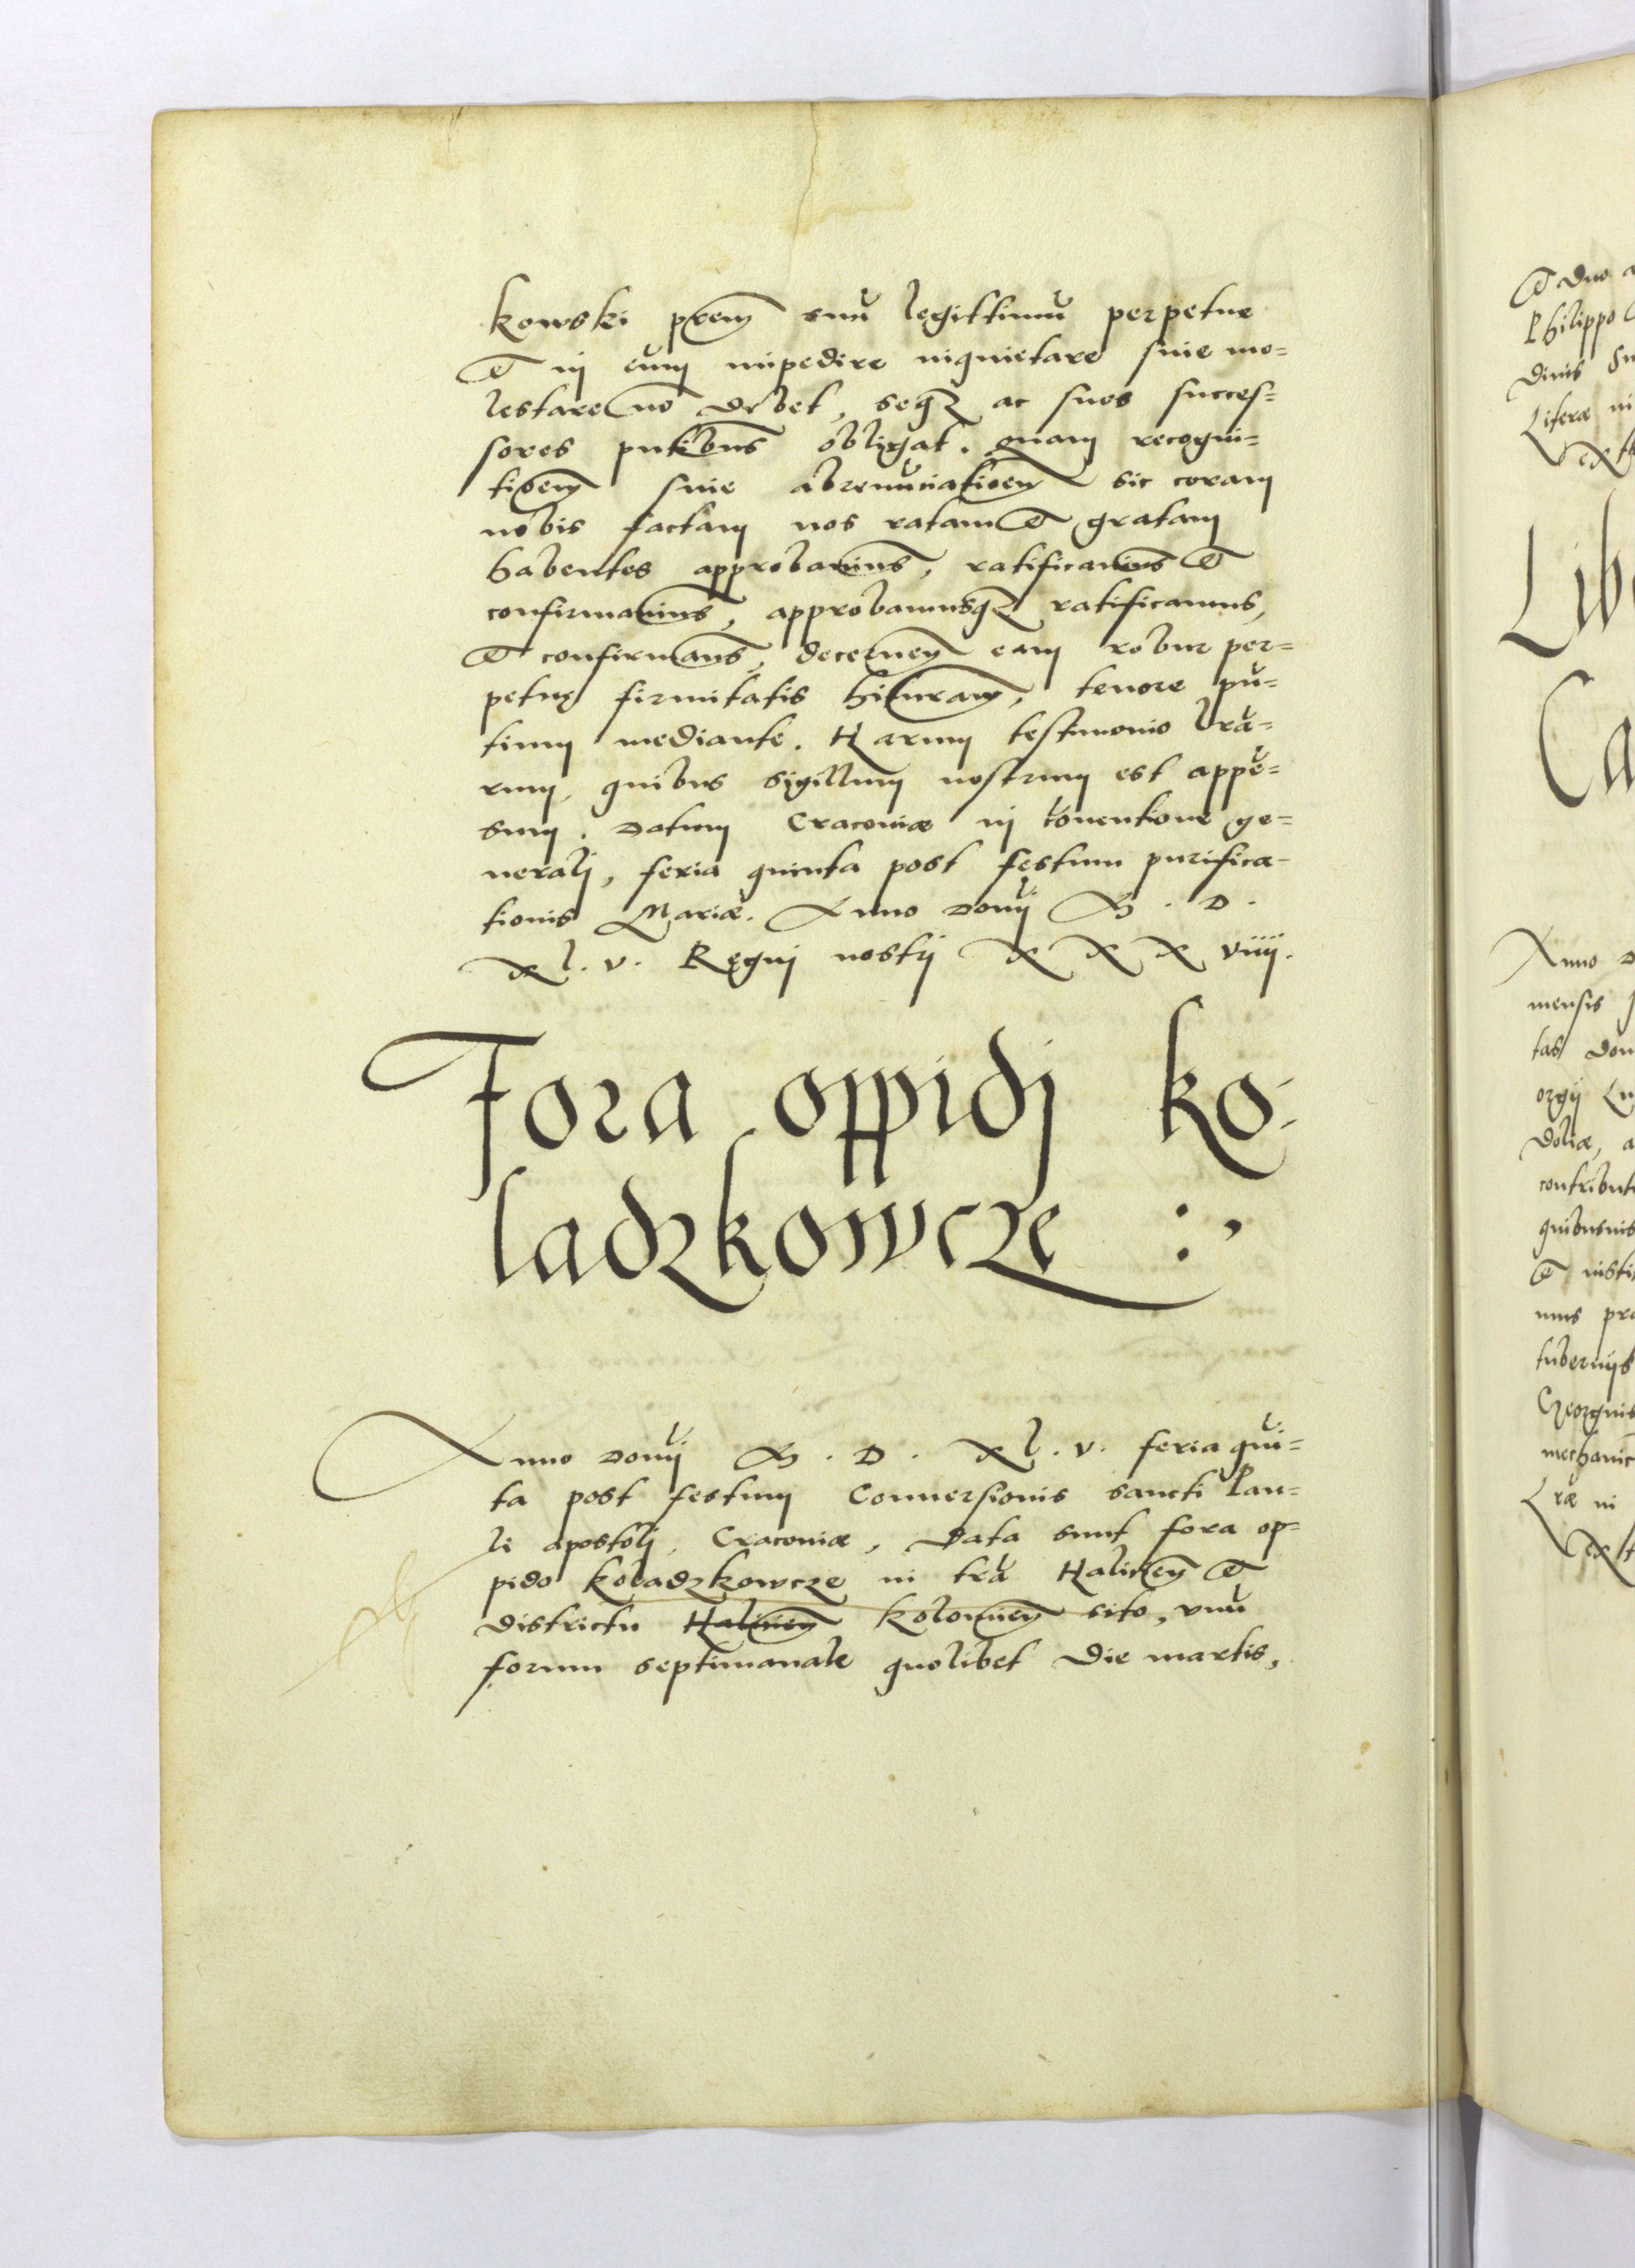 kowski prem suu legittimu perpetue
et in eum impedire inquietare siue mo=
lestare no debet, seq₃ ac suos succes=
sores pntibus obligat. quam recogni=
tioem siue abrenunciatioem sic coram
nobis factam nos ratam et gratam
habentes approbauimus, ratificauimus et
confirmauimus, approbamusq₃ ratificamus,
et confirmamus, decernen eam robur per=
petuę firmitatis hituram, tenore pn=
tium mediante. Harum testimonio lra=
rum, quibus sigillum nostrum est appe=
sum. Datum Cracoviæ in conuentione ge=
neralj, feria quinta post festum purifica=
tionis Mariæ. Anno Donij M. D.
Xl. v. Regnj nostrj XXXviiij.
Fora oppidj ko=
ladzkowcze :,
Anno Donij M. D. Xl. v. feria qui=
ta post festum Conuersionis sancti Pau=
li apostolj, Cracoviæ, Data sunt fora op=
pido koladzkowcze in tra Halicien et
districtu Halicien Kolomien sito, vnu
forum septimanale quolibet die martis,
et Duo a
Philippo
Diuis Su
Literæ in
Ext
Lib
Ca
Anno D
mensis J
tas Dom
orgij Lu
doliæ, a
contribut
quibusuis
et insti
mus pra
tuberniis
Georgius
mechanic
Lræ in
Ext